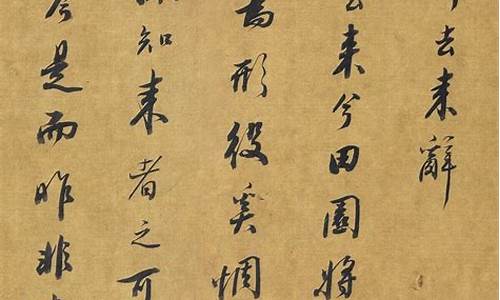 去来辭
去来兮田園將
為形役奚惆
知来者之可
今是而昨非